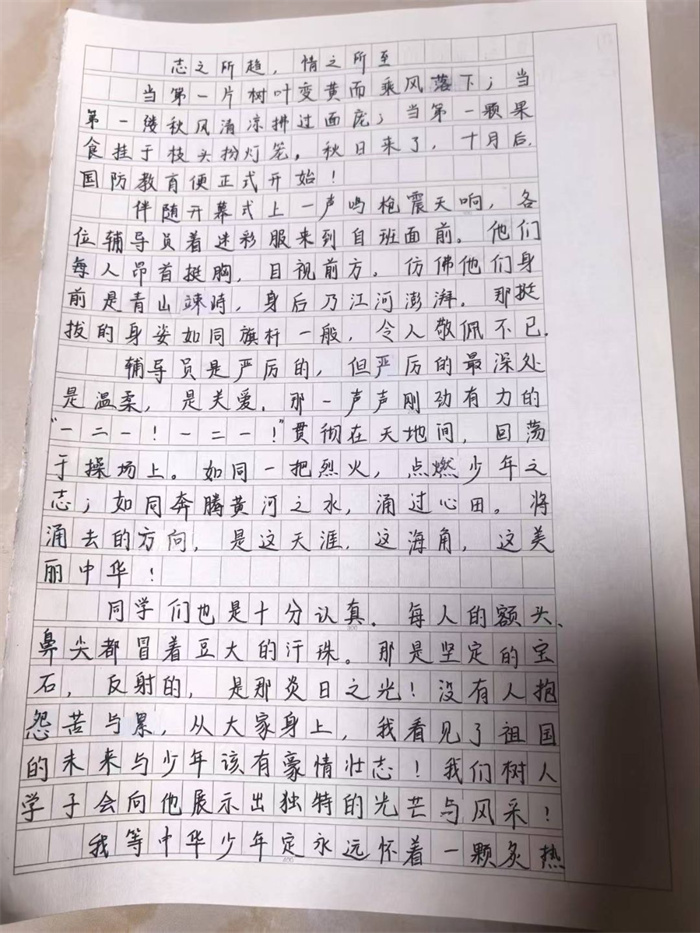 志之所趋，情之所至
当第一片树叶变黄而乘风落下；当
第一缕秋风清凉拂过面庞；当第一颗果
食挂于枝头扮灯笼，秋日来了，十月后，
国防教育便正式开始！
伴随开幕式上一声鸣枪震天响，各
位辅导员着迷彩服来到自班面前。他们
每人昂首挺胸，目视前方。仿佛他们身
前是青山竦峙，身后乃江河澎湃。那挺
拔的身姿如同旗杆一般，令人敬佩不已.
辅导员是严厉的，但严厉的最深处
是温柔，是关爱.那一声声刚劲有力的
“一二一！一二一！”贯彻在天地间，回荡
于操场上。如同一把烈火，点燃少年之
志；如同奔腾黄河之水，涌过心田。将
涌去的方向，是这天涯.这海角，这美
丽中华！
同学们也是十分认真.每人的额头、
鼻尖都冒着豆大的汗珠。那是坚定的宝
石，反射的，是那炎日之光！没有人抱
怨苦与累，从大家身上，我看见了祖国
的未来与少年该有豪情壮志！我们树人
学子会向他展示出独特的光芒与风采！
我等中华少年定永远怀着一颗炙热